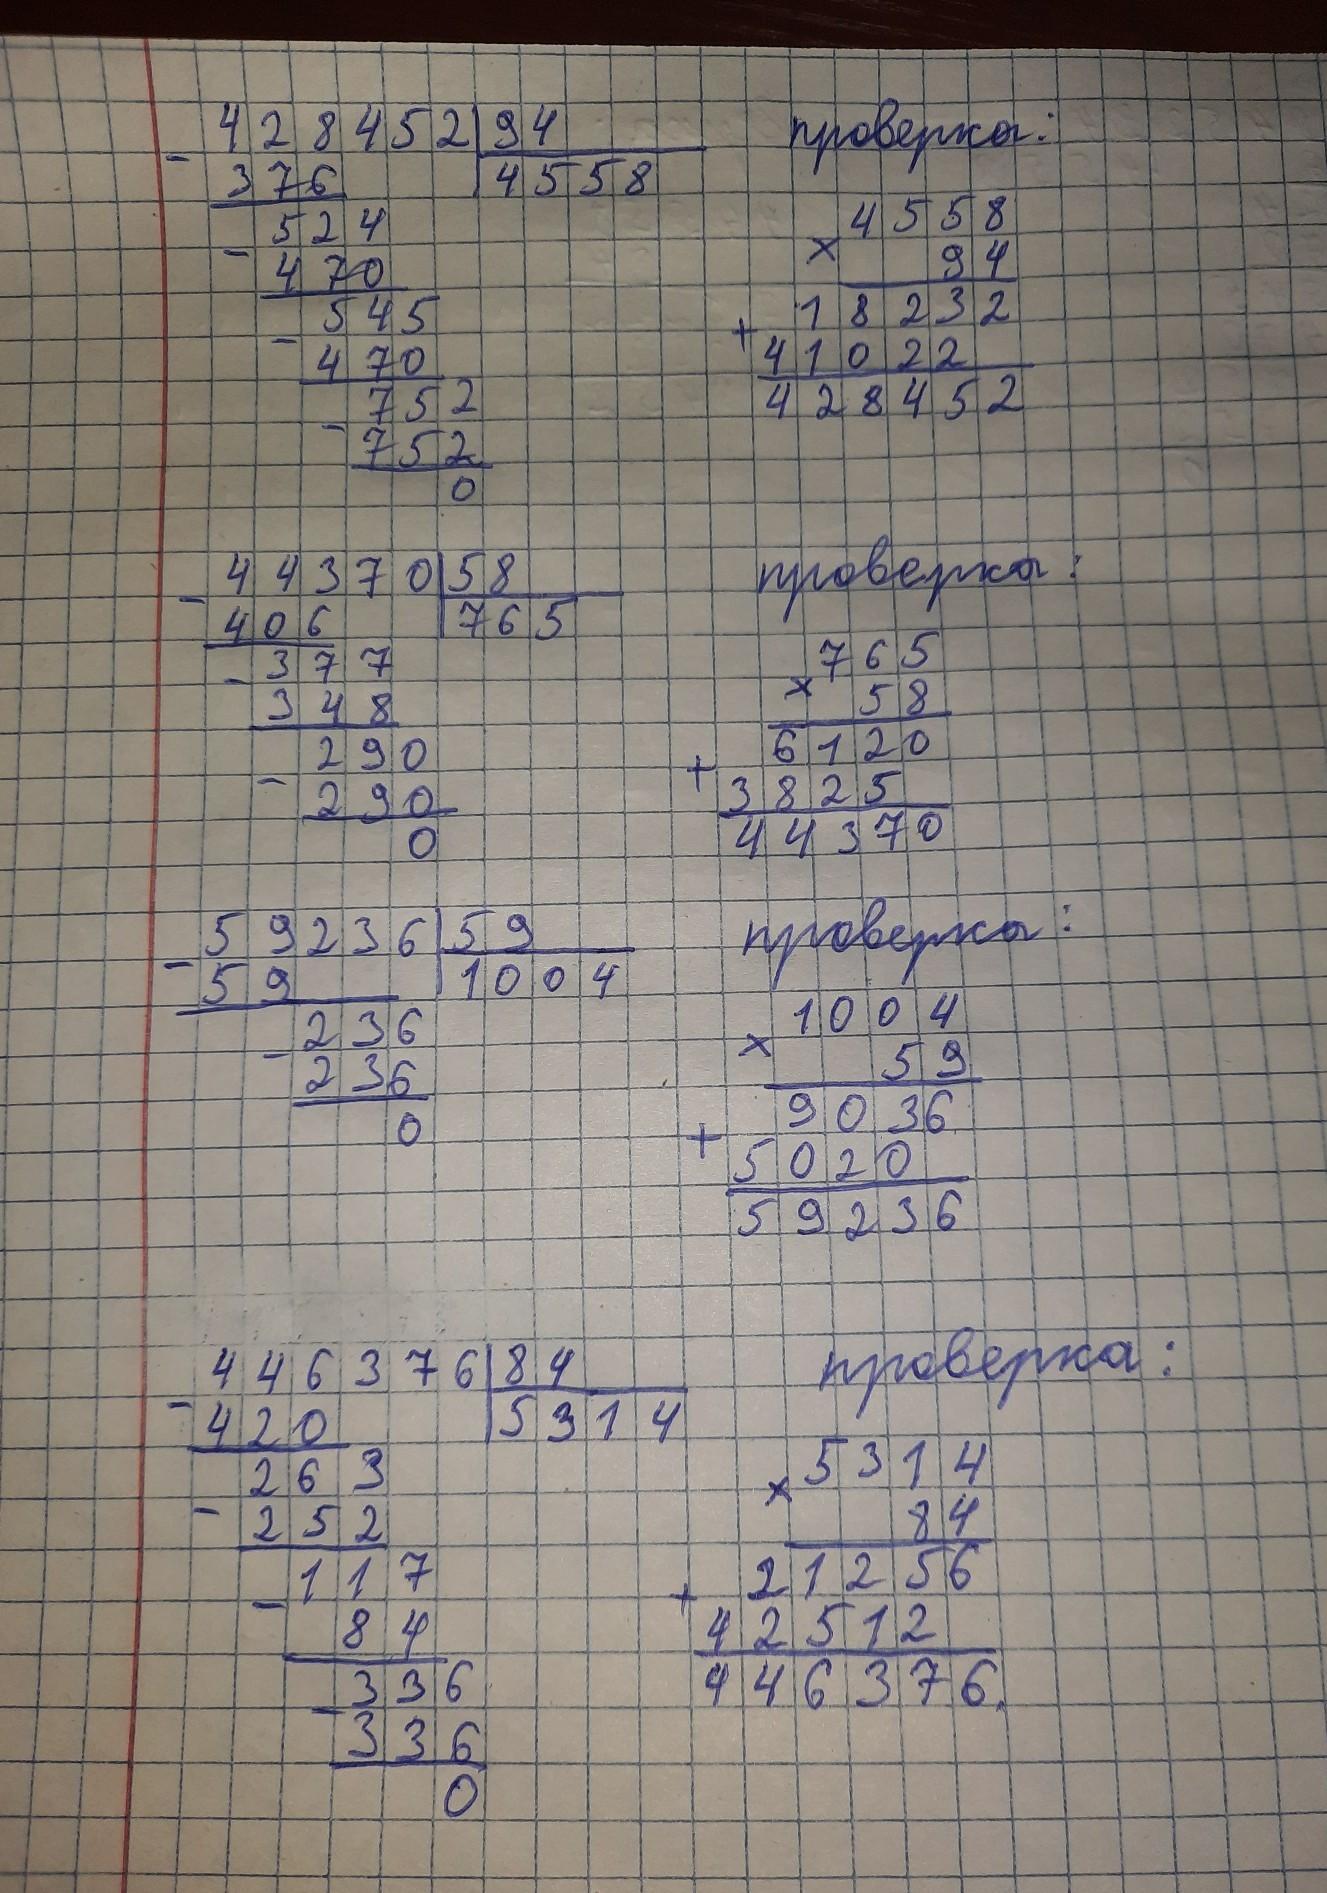 428452|94
- 376 4558
524
- 470
545
- 470
752
- 752
0
проверка:
4558
x 94
18232
+ 41022
428452
44370|58
- 406 765
377
- 348
290
- 290
0
проверка:
765
x 58
6120
+ 3825
44370
59236|59
- 59 1004
236
- 236
0
проверка:
1004
x 59
9036
+ 5020
59236
446376|84
- 420 5314
263
- 252
117
- 84
336
- 336
0
проверка:
5314
x 84
21256
+ 42512
446376.